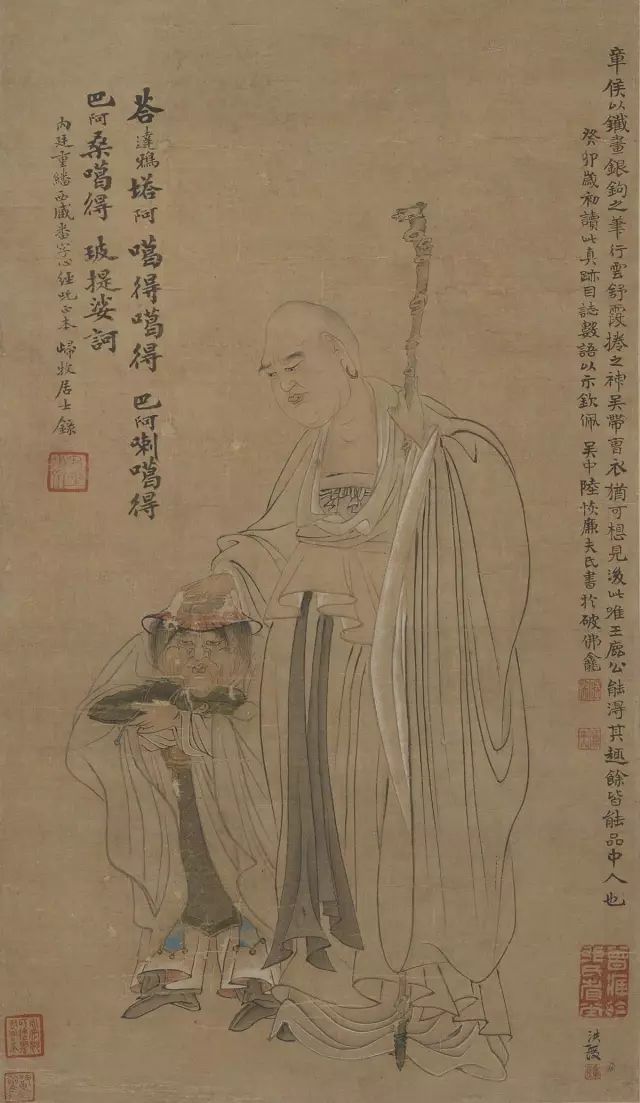 章侯以鐵畫銀鉤之筆行雲舒霞捲之神吳帶曹衣猶可想見後此唯王公能得其趣餘皆能品中人也
癸卯歲初讀此真跡因誌數語以示欽佩 吳中陸恢廉夫氏書於破佛龕
洪綬
荅達鴉塔阿 噶得噶得 巴阿喇噶得
巴阿桑噶得 玻提娑訶
內廷重繙西藏畨字心經呪正本 歸牧居士錄